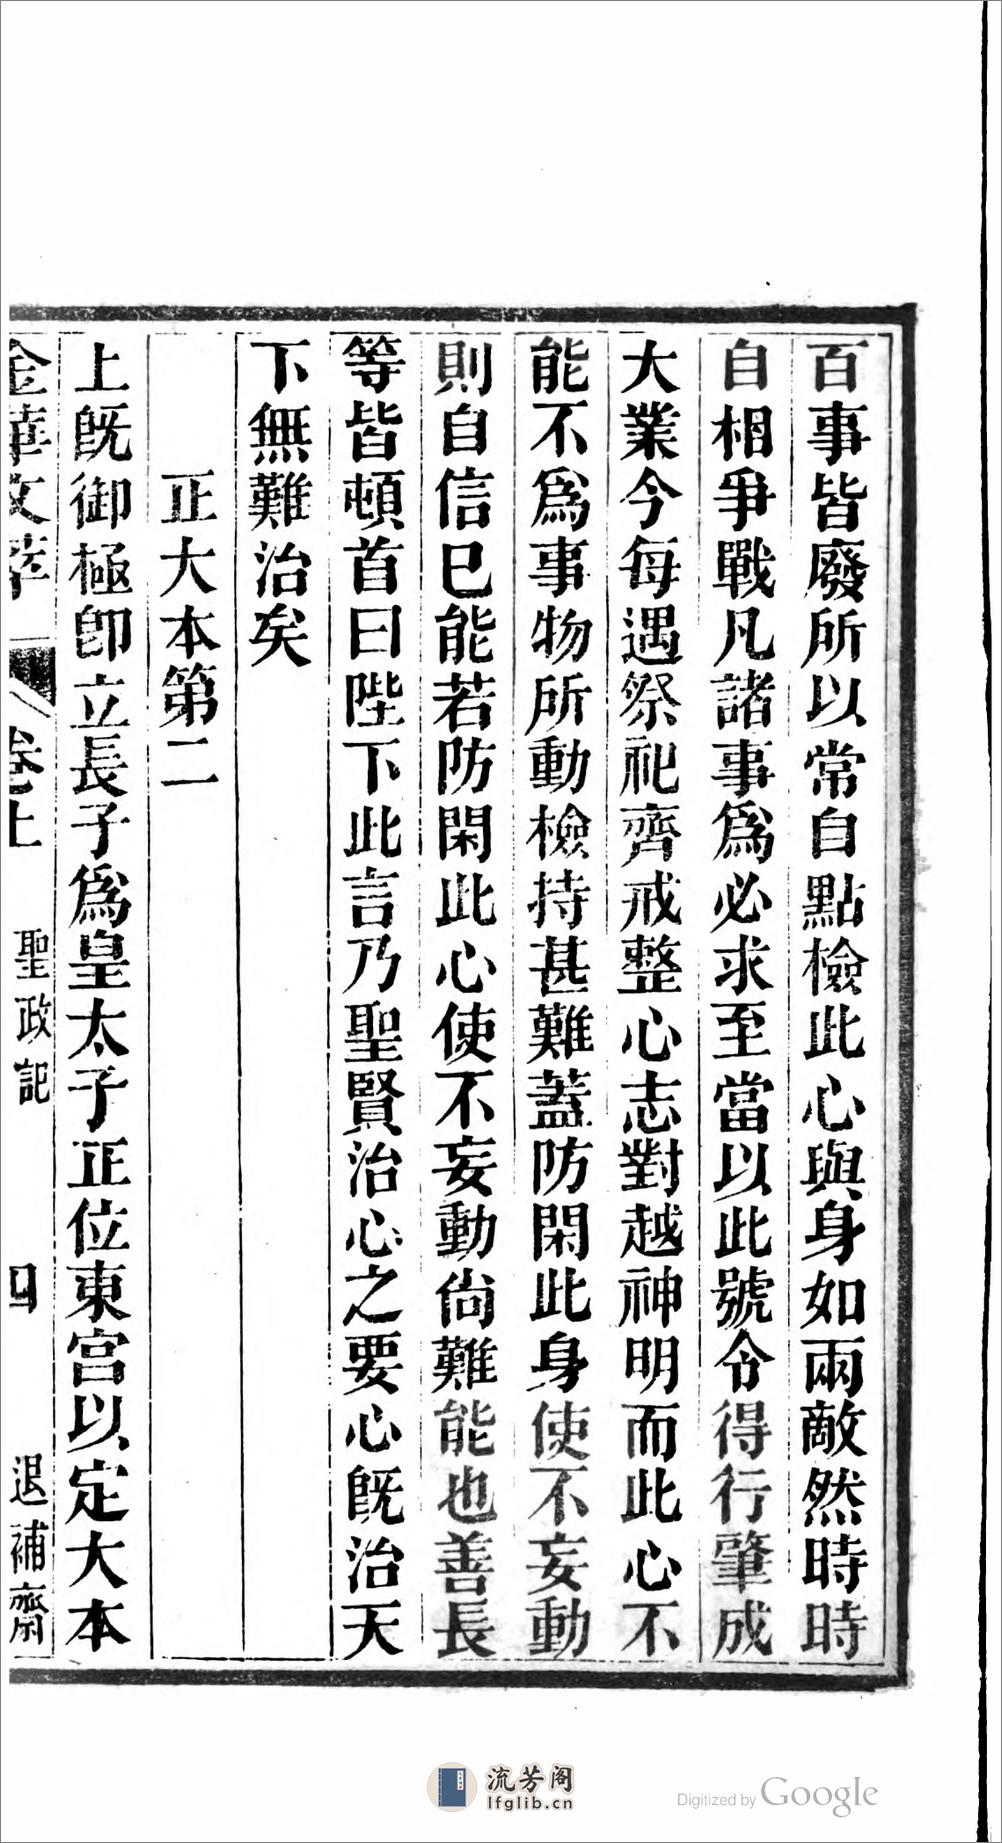 百事皆廢所以常自點檢此心與身如兩敵然時時
自相爭戰凡諸事爲必求至當以此號令得行肇成
大業今每遇祭祀齊戒整心志對越神明而此心不
能不爲事物所動檢持甚難蓋防閑此身使不妄動
則自信已能若防閑此心使不妄動尙難能也善長
等皆頓首曰陛下此言乃聖賢治心之要心旣治天
下無難治矣
正大本第二
上旣御極卽立長子爲皇太子正位東宮以定大本
金華文萃 卷上 聖政記 四 退補齋
流芳阁
lfglib.cn
Digitized by Google